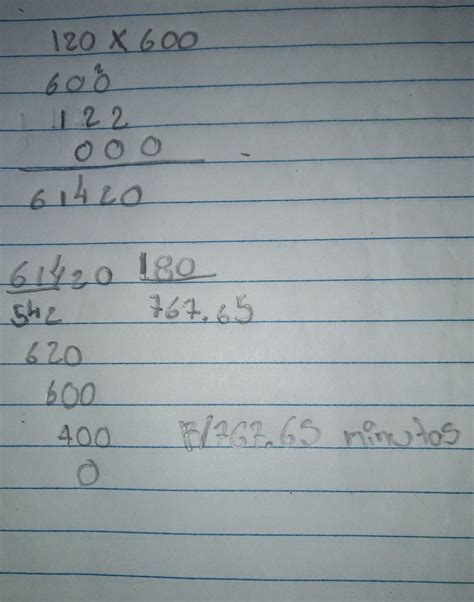 120 x 600
600
122
000
61420
61420 180
542 767.65
620
600
400 R/767.65 minutos
0